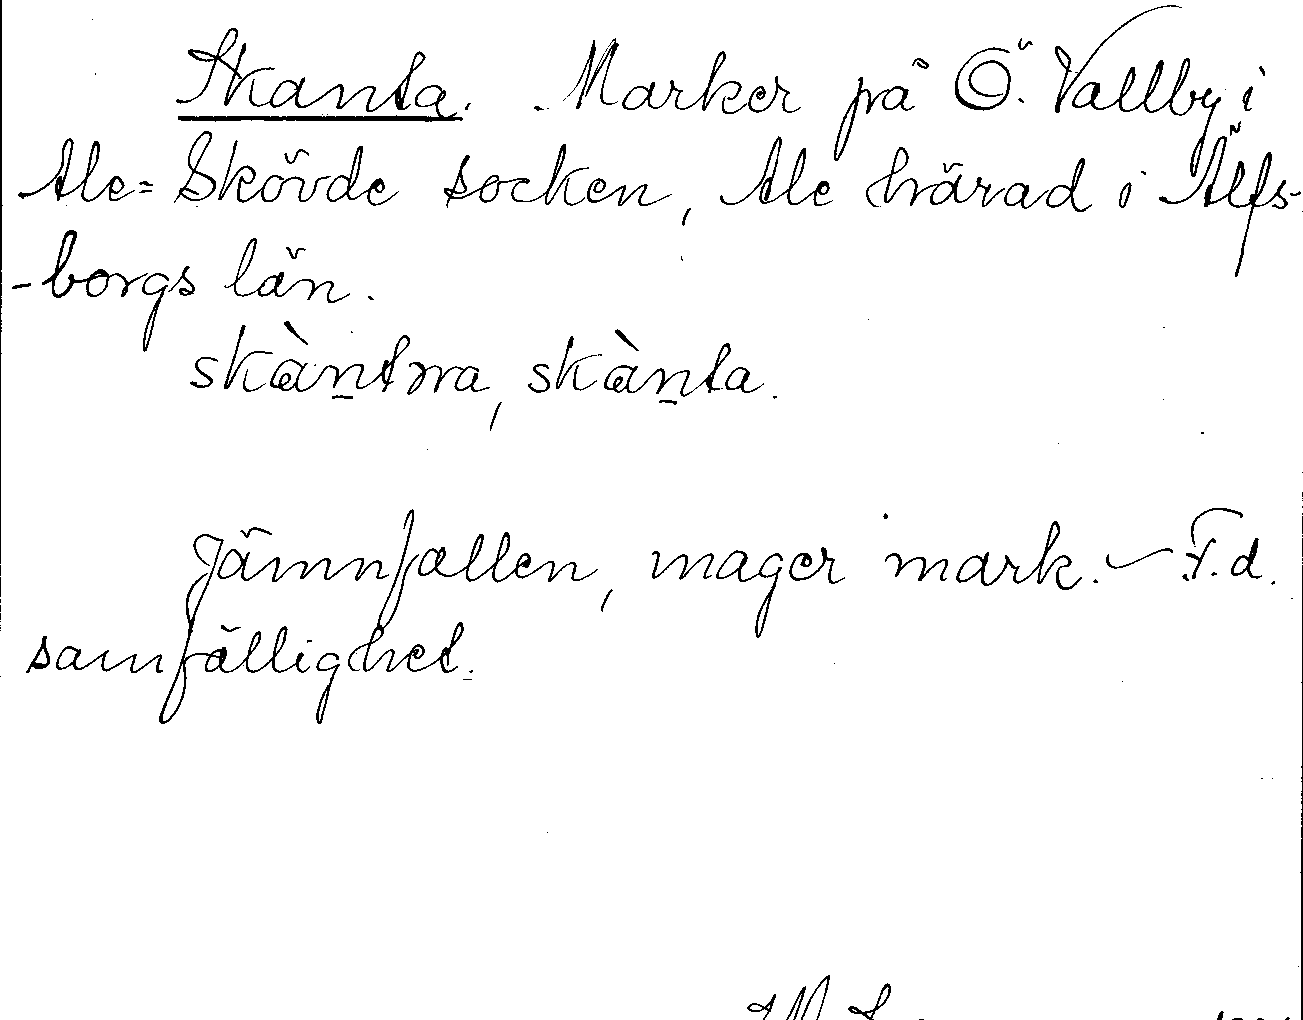 Skanta. Marker på Ö. Vallby i
Ale=Skövde socken, Ale härad i Älfs-
-borgs län.
skànt̲na, skàn̲ta.
Jämnfallen, mager mark. — F. d.
samfällighet.